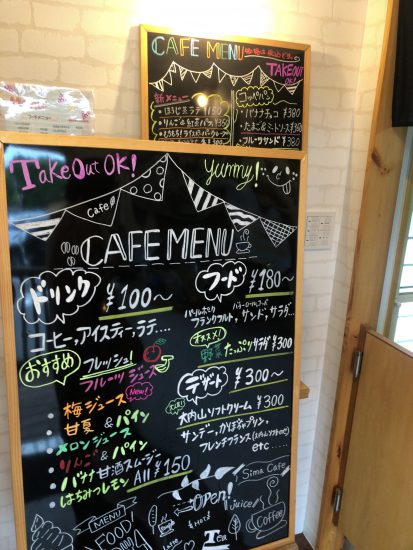 CAFE MENU
TAKEOUT
OK!
新メニュー
・バナナチョコ ¥380
・たまごミートソース ¥350
・フルーツサンド ¥380
Take Out OK!
yummy!
Cafe
CAFE MENU
ドリンク
¥100〜
コーヒー,アイスティー,ラテ....
おすすめ
フレッシュ!
フルーツジュース
New!
・梅ジュース
・甘夏 & パイン
・メロンジュース
・りんご & パイン
・バナナ甘酒スムージー
・はちみつレモン All ¥150
フード
¥180〜
フランクフルト, サンド, サラダ...
オススメ!
野菜たっぷりサラダ ¥300
デザート
¥300〜
大内山ソフトクリーム ¥300
サンデー,かぼちゃプリン,
etc ....
MENU
FOOD
Open!
Hot
Latte
juice!
Tea
Sima Cafe
Coffee